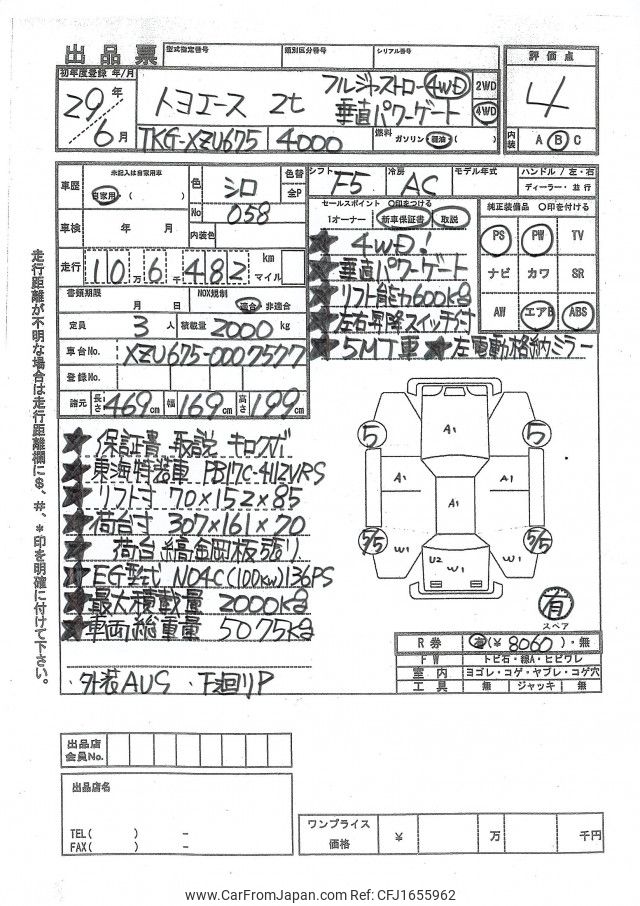 出品票
型式指定番号
類別区分番号
シリアル番号
評価点
4
内装 A B C
初年度登録 年/月
29年
6月
トヨエース 2t
フルジャストロー 4WD
垂直パワーゲート
2WD
4WD
TKG-XZU675
4000
燃料 ガソリン・軽油・( )
車歴
未記入は自家用車
自家用・( )
色
シロ
色替
全P
No
058
車検 年 月
内装色
走行
10万6千482
km
マイル
書類期限
月 日
NOX規制
適合・非適合
定員 3 人
積載量 2000 kg
車台No. XZU675-0007577
登録No.
諸元
長さ 469 cm 幅 169 cm 高さ 199 cm
シフト F5
冷房 AC
モデル年式
ハンドル / 左・右
ディーラー・並行
セールスポイント ○印をつける
1オーナー 新車保証書 取説
★ 4WD!
★ 垂直パワーゲート
★ リフト能力600kg
★ 左右昇降スイッチ付
★ 5MT車 ★ 左電動格納ミラー
純正装備品 ○印を付ける
PS PW TV
ナビ カワ SR
AW エアB ABS
走行距離が不明な場合は走行距離欄に$、#、*印を明確に付けて下さい。
★ 保証書 取説 キロクボ
★ 東海特装車 PB17C-411ZVRS
★ リフト寸 70×152×85
★ 荷台寸 307×161×70
荷台 縞鋼板張り
EG型式 N04C(100kw)136PS
★ 最大積載量 2000kg
★ 車両総重量 5075kg
・外装AUS ・下廻りP
A1
5
5
A1
A1
A1
5/5
5/5
W1
U2
W1
W1
有
スペア
R券 有(¥8060)・無
FW トビ石・線A・ヒビワレ
室内 ヨゴレ・コゲ・ヤブレ・コゲ穴
工具 無 ジャッキ 無
出品店
会員No.
出品店名
TEL( ) -
FAX( ) -
ワンプライス
価格
¥ 万 千円
www.CarFromJapan.com Ref: CFJ1655962